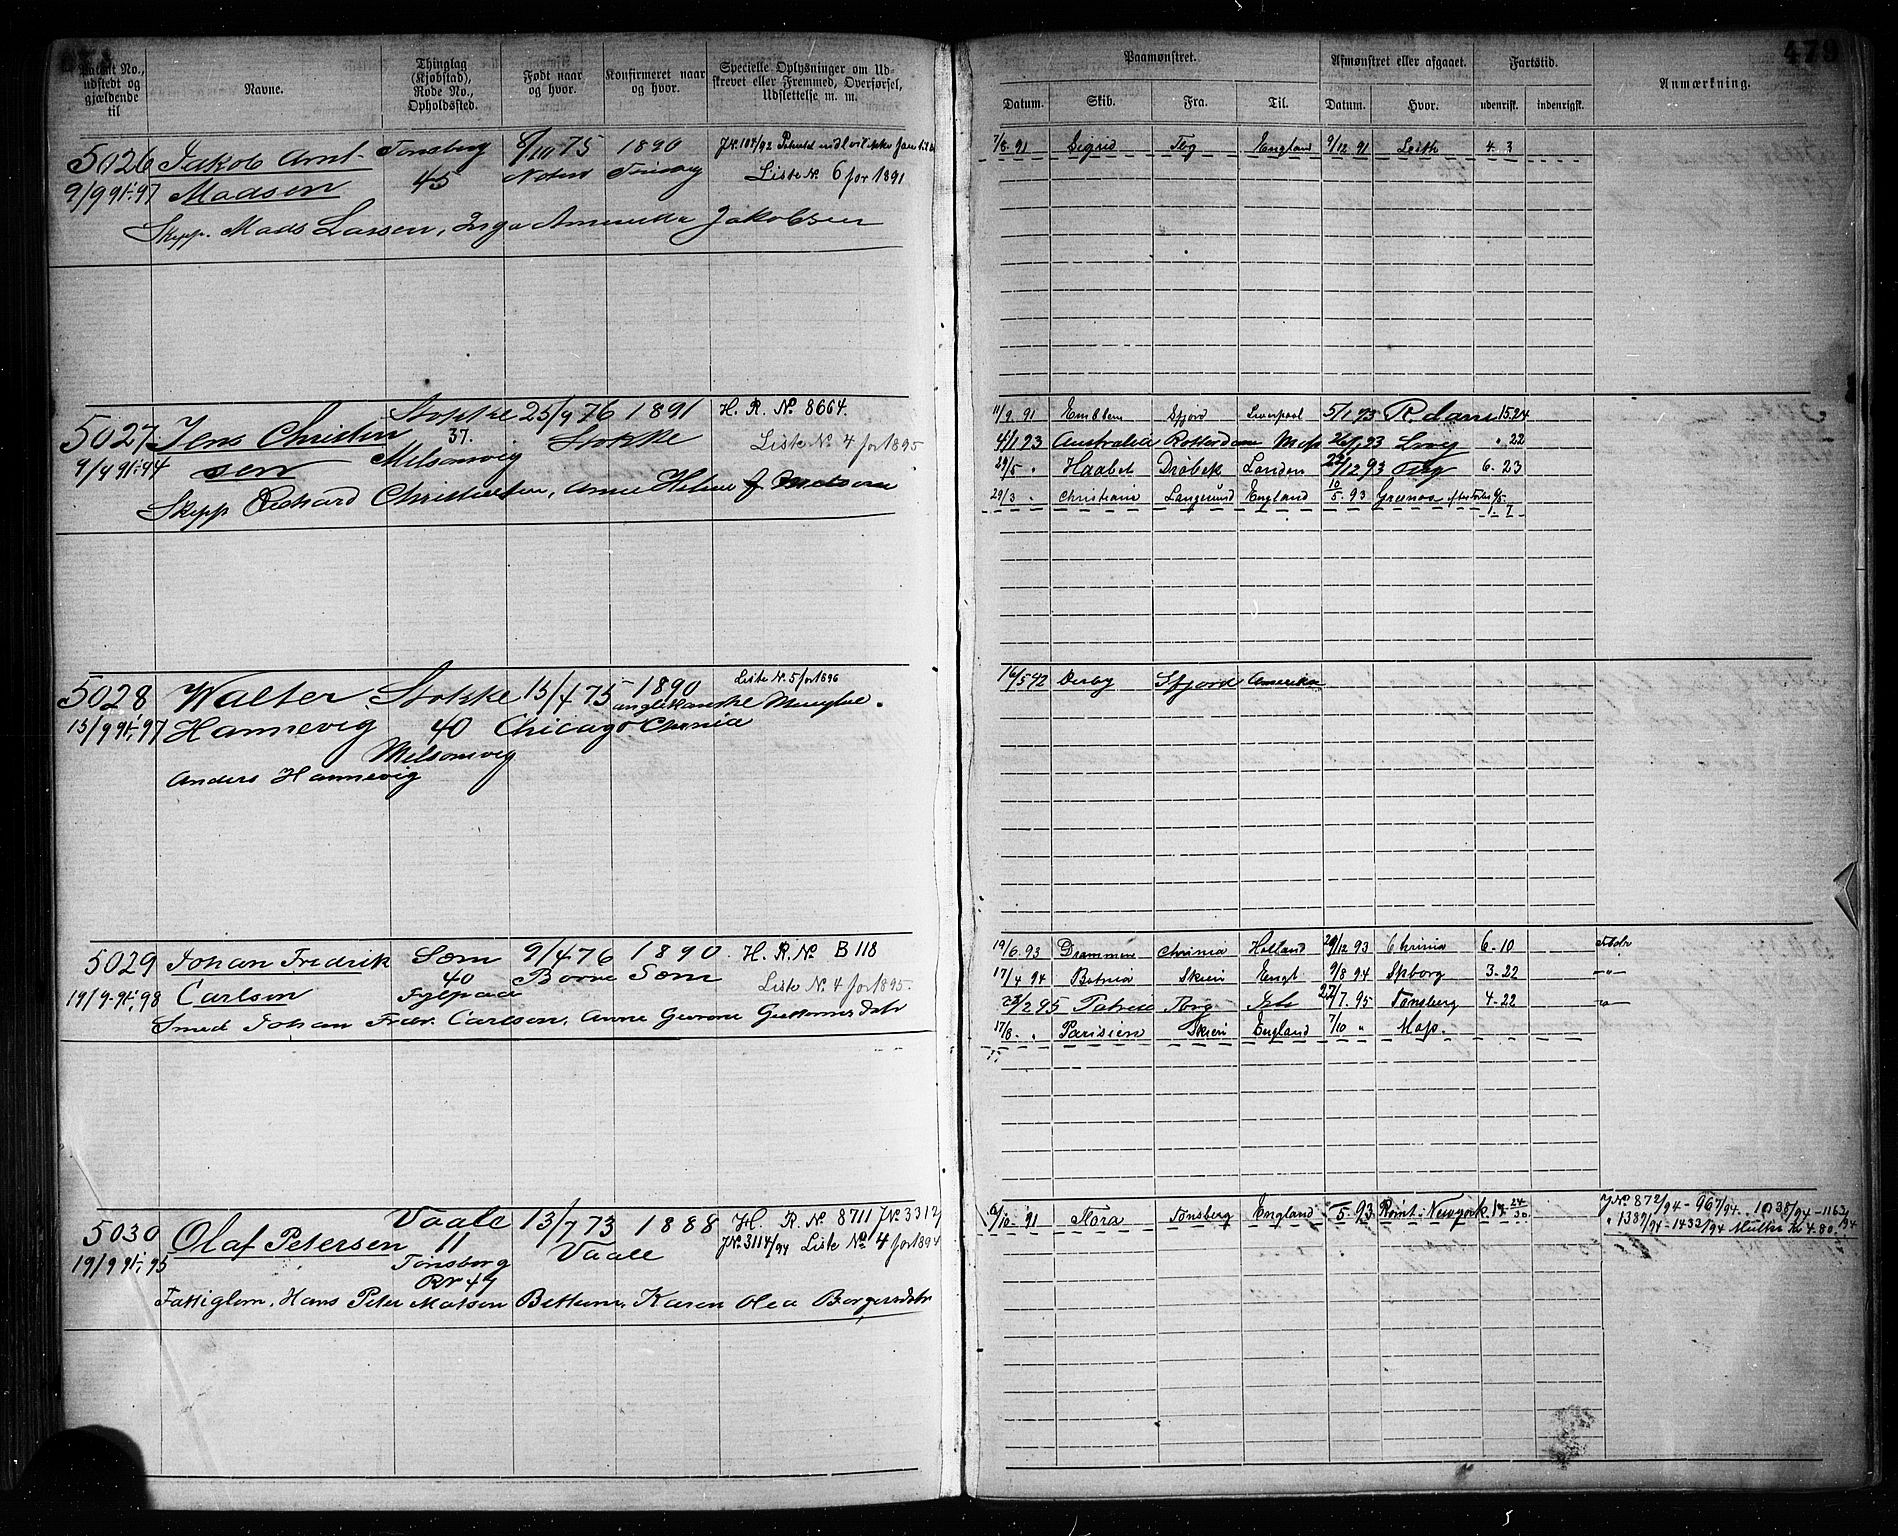 479
Patent No., udstedt og gjældende til
Navne.
Thinglag (Kjøbstad), Rode No., Opholdssted.
Født naar og hvor.
Konfirmeret naar og hvor.
Specielle Oplysninger om Udskrevet eller Fremmed, Overførsel, Udslettelse m. m.
Paamønstret.
Afmønstret eller afgaaet.
Fartstid.
Anmærkning.
Datum. Skib. Fra. Til. Datum. Hvor. udenrigsk. indenrigsk.
5026 Jakob Arnt- Tønsberg 8/10 75 1890
9/9 91-97 Madsen 45 Liste No 6 for 1891
Skipp. Mads Larsen, Inga Jakobsen
7/8 91 Sigrid Tbg England 9/12 91 Leith 4. 3
5027 Jens Christen Stokke 25/9 76 1891 H. R. No 8664.
9/9 91-94 sen 37. Melsomvig Stokke Liste No 4 for 1895
Skipp Richard Christensen, Anne Heline
11/9 91 Emblem Sfjord Liverpool 5/1 93 R.dam 15 24
4/1 93 Australia Rotterdam Moss 26/ 93 " 22
29/5 " Haabet Drøbak London 22/12 93 Tbg 6. 23
29/3 " Christiane Langesund England 10/5. 93
1. 7
5028 Walter Stokke 15/4 75 1890 Liste No 5 for 1896
15/9 91-97 Hannevig 40 Chicago Chrania
Melsomvig
Anders Hannevig
16/5 92 Derby Sfjord Amerika
5029 Johan Fredrik Sæm 9/4 76 1890. H. R. No B 118
19/9 91-98 Carlsen 40 Borre Sæm Liste No 4 for 1895
Smed Johan Fredr. Carlsen, Anne
19/6 93 Drammen Chrania Holland 29/12 93 Chrania 6-10
17/4 94 Botnia Skien Engl 9/8 94 Spborg 3-22 -"-
23/2 95 Tbrg 22/7. 95 Tønsberg 4-22 -"-
17/8 " Parisien Skien England 7/10 " Moss.
5030 Olaf Petersen Vaale 13/7 73 1888 H. R. No 8711 J.No 3312/
19/9 91-95 11 Vaale J.No 3114/94 Liste No 4 for 1894
Tønsberg
Rr 47
Fattiglem, Hans Peter Matsen Bettum, Karen Olea Borgersdatr
6/10 91 Flora Tønsberg England /5 93 Rømt: Newyork
J.No 872/94 - 967/94. 1038/94-1163/94
" 1389/94-1432/94 Mulkt Kr 4.80.